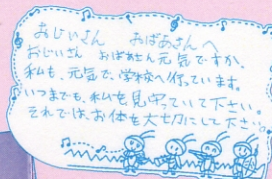 おじいさん　おばあさんへ
おじいさん　おばあさん元気ですか。
私も、元気で、学校へ行っています。
いつまでも、私を見守っていて下さい。
それでは、お体を大切にして下さい。